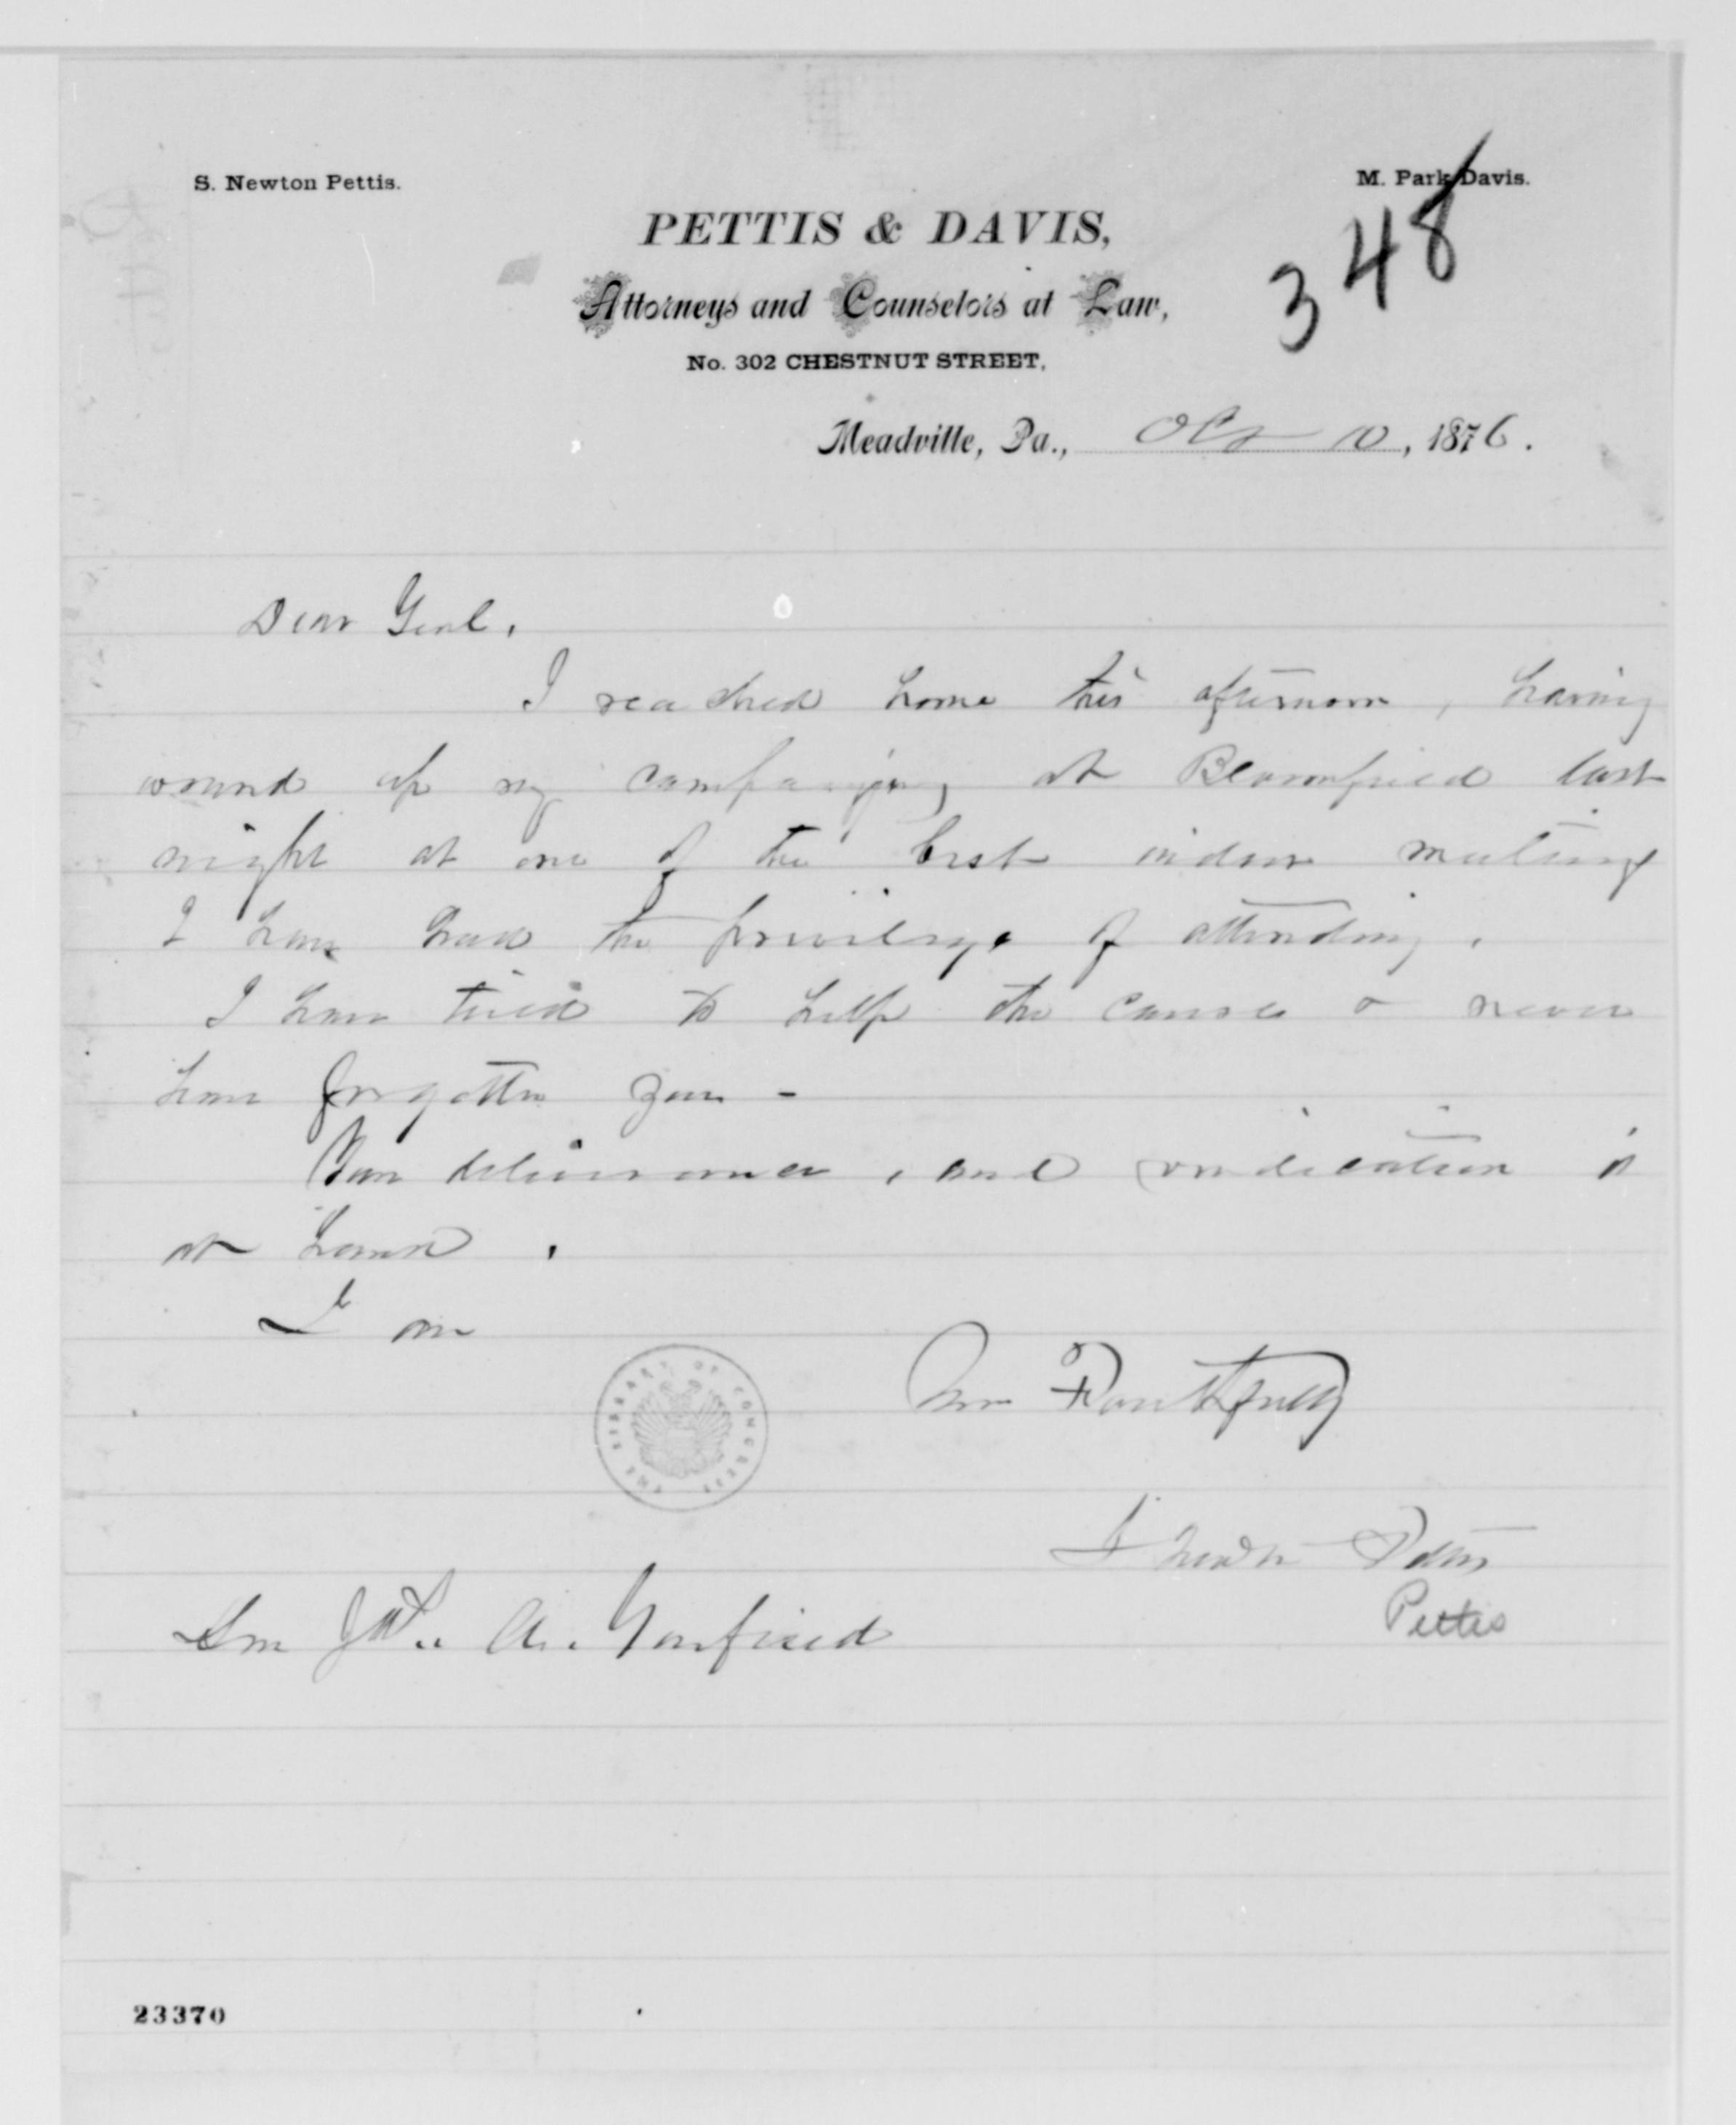 S. Newton Pettis.
M. Park Davis.
348
PETTIS & DAVIS,
Attorneys and Counselors at Law,
No. 302 CHESTNUT STREET,
Meadville, Pa., Oct 10, 1876.
Dear Genl.
I reached home this afternoon, having
wound up my campaigning at Bloomfield last
night at one of the best indoor meetings
I have had the privilege of attending.
I have tried to help the cause & never
have forgotten you -
Your deliverance, and vindication is
at hand.
I am
Your Faithfully
THE LIBRARY OF CONGRESS
S Newton Pettis
Pettis
Hon Jas. A. Garfield
23370